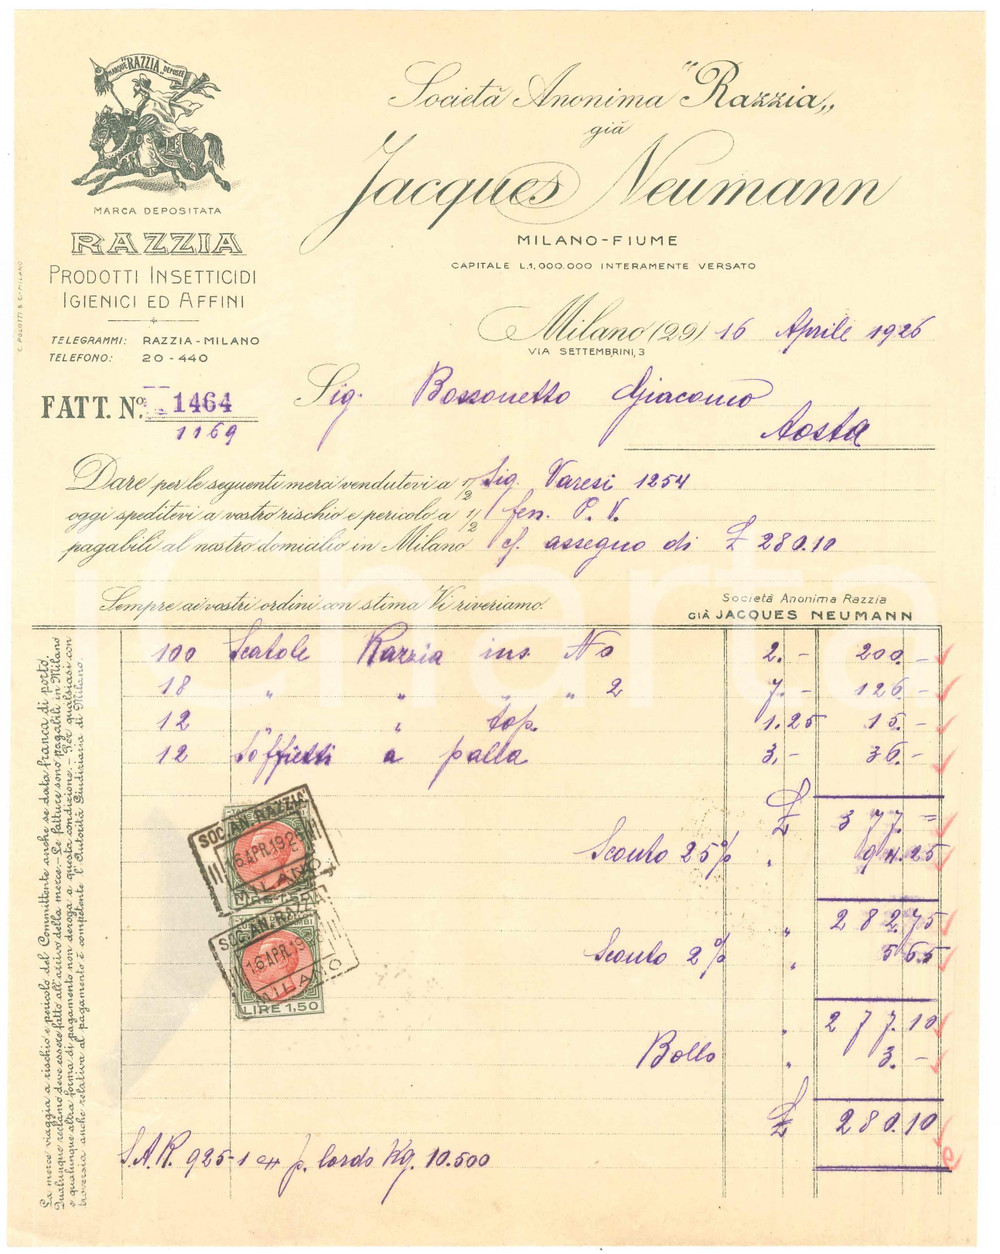 MARQUE "RAZZIA" DEPOSÉE
MARCA DEPOSITATA
RAZZIA
PRODOTTI INSETTICIDI
IGIENICI ED AFFINI
TELEGRAMMI: RAZZIA-MILANO
TELEFONO: 20-440
Società Anonima "Razzia„
già
Jacques Neumann
MILANO-FIUME
CAPITALE L.1.000.000 INTERAMENTE VERSATO
Milano (29) 16 Aprile 1926
VIA SETTEMBRINI, 3
FATT. No. 1464
1169
Sig. Bossonetto Giacomo
Aosta
Dare per le seguenti merci vendutevi a 1/2 Sig. Varesi 1254
oggi speditevi a vostro rischio e pericolo a 1/2 fen. P. V.
pagabili al nostro domicilio in Milano c/ assegno di £ 280.10
Sempre ai vostri ordini con stima Vi riveriamo.
Società Anonima Razzia
GIÀ JACQUES NEUMANN
100 Scatole Razzia ins No 2.- 200.-
18 " " " " 2 7.- 126.-
12 " " top. 1.25 15.-
12 Soffietti a palla 3.- 36.-
£ 377.=
Sconto 25% " 94.25
" 282.75
Sconto 2% " 5.65
" 277.10
Bollo " 3.-
£ 280.10
SOC. AN. RAZZIA
16 APR. 1926
MILANO
SOC. AN. RAZZIA
16 APR. 19
MILANO
LIRE 1,50
S.A.R. 925-1 p. lordo Kg. 10.500
La merce viaggia a rischio e pericolo del Committente anche se data franca di porto.
Qualunque reclamo deve essere fatto all'arrivo della merce.- Le fatture sono pagabili in Milano
e qualunque altra forma di pagamento non deroga a questa condizione.- Per qualsiasi con
troversia anche relativa al pagamento è competente l'Autorità Giudiziaria di Milano.
C. POLOTTI & C.-MILANO
charta